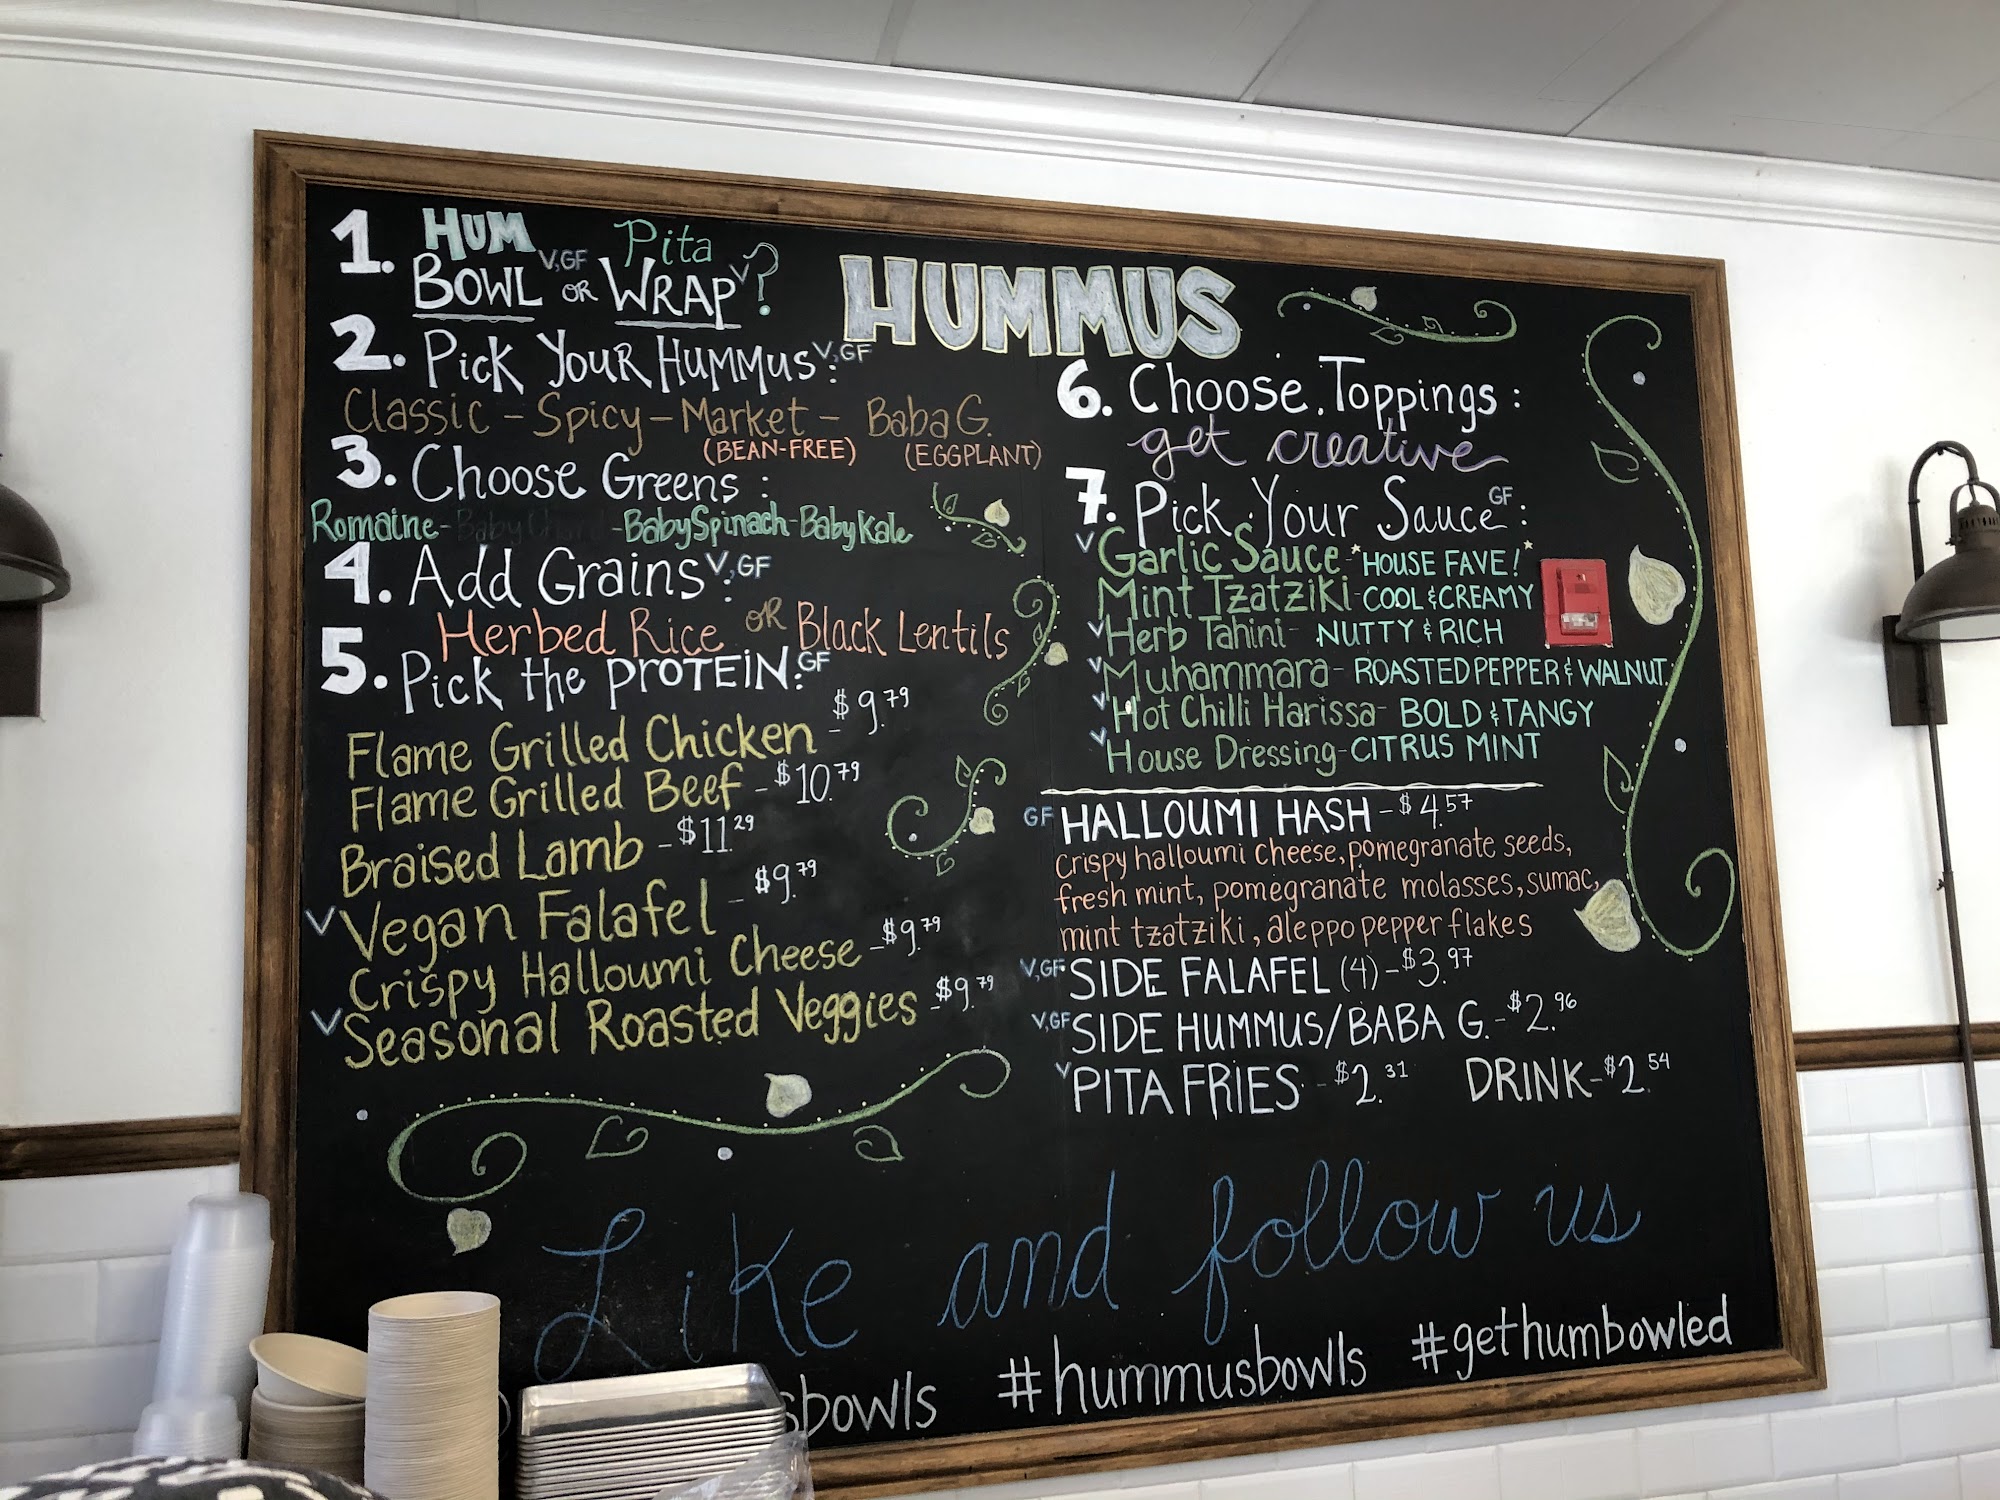 HUMMUS
1. HUM BOWL V,GF OR Pita WRAP V ?
2. Pick Your Hummus: V,GF
Classic - Spicy - Market - Baba G.
(BEAN-FREE) (EGGPLANT)
3. Choose Greens:
Romaine - Baby Chard - Baby Spinach - Baby Kale
4. Add Grains: V,GF
Herbed Rice OR Black Lentils
5. Pick the PROTEIN: GF
Flame Grilled Chicken - $9.79
Flame Grilled Beef - $10.79
Braised Lamb - $11.29
V Vegan Falafel - $9.79
Crispy Halloumi Cheese - $9.79
V Seasonal Roasted Veggies - $9.79
6. Choose Toppings:
get creative
7. Pick Your Sauce GF:
V Garlic Sauce - *HOUSE FAVE!*
Mint Tzatziki - COOL & CREAMY
V Herb Tahini - NUTTY & RICH
V Muhammara - ROASTED PEPPER & WALNUT
V Hot Chilli Harissa - BOLD & TANGY
V House Dressing - CITRUS MINT
GF HALLOUMI HASH - $4.57
Crispy halloumi cheese, pomegranate seeds,
fresh mint, pomegranate molasses, sumac,
mint tzatziki, aleppo pepper flakes
V,GF SIDE FALAFEL (4) - $3.97
V,GF SIDE HUMMUS/BABA G. - $2.96
V PITA FRIES - $2.31 DRINK - $2.54
Like and follow us
sbowls #hummusbowls #gethumbowled